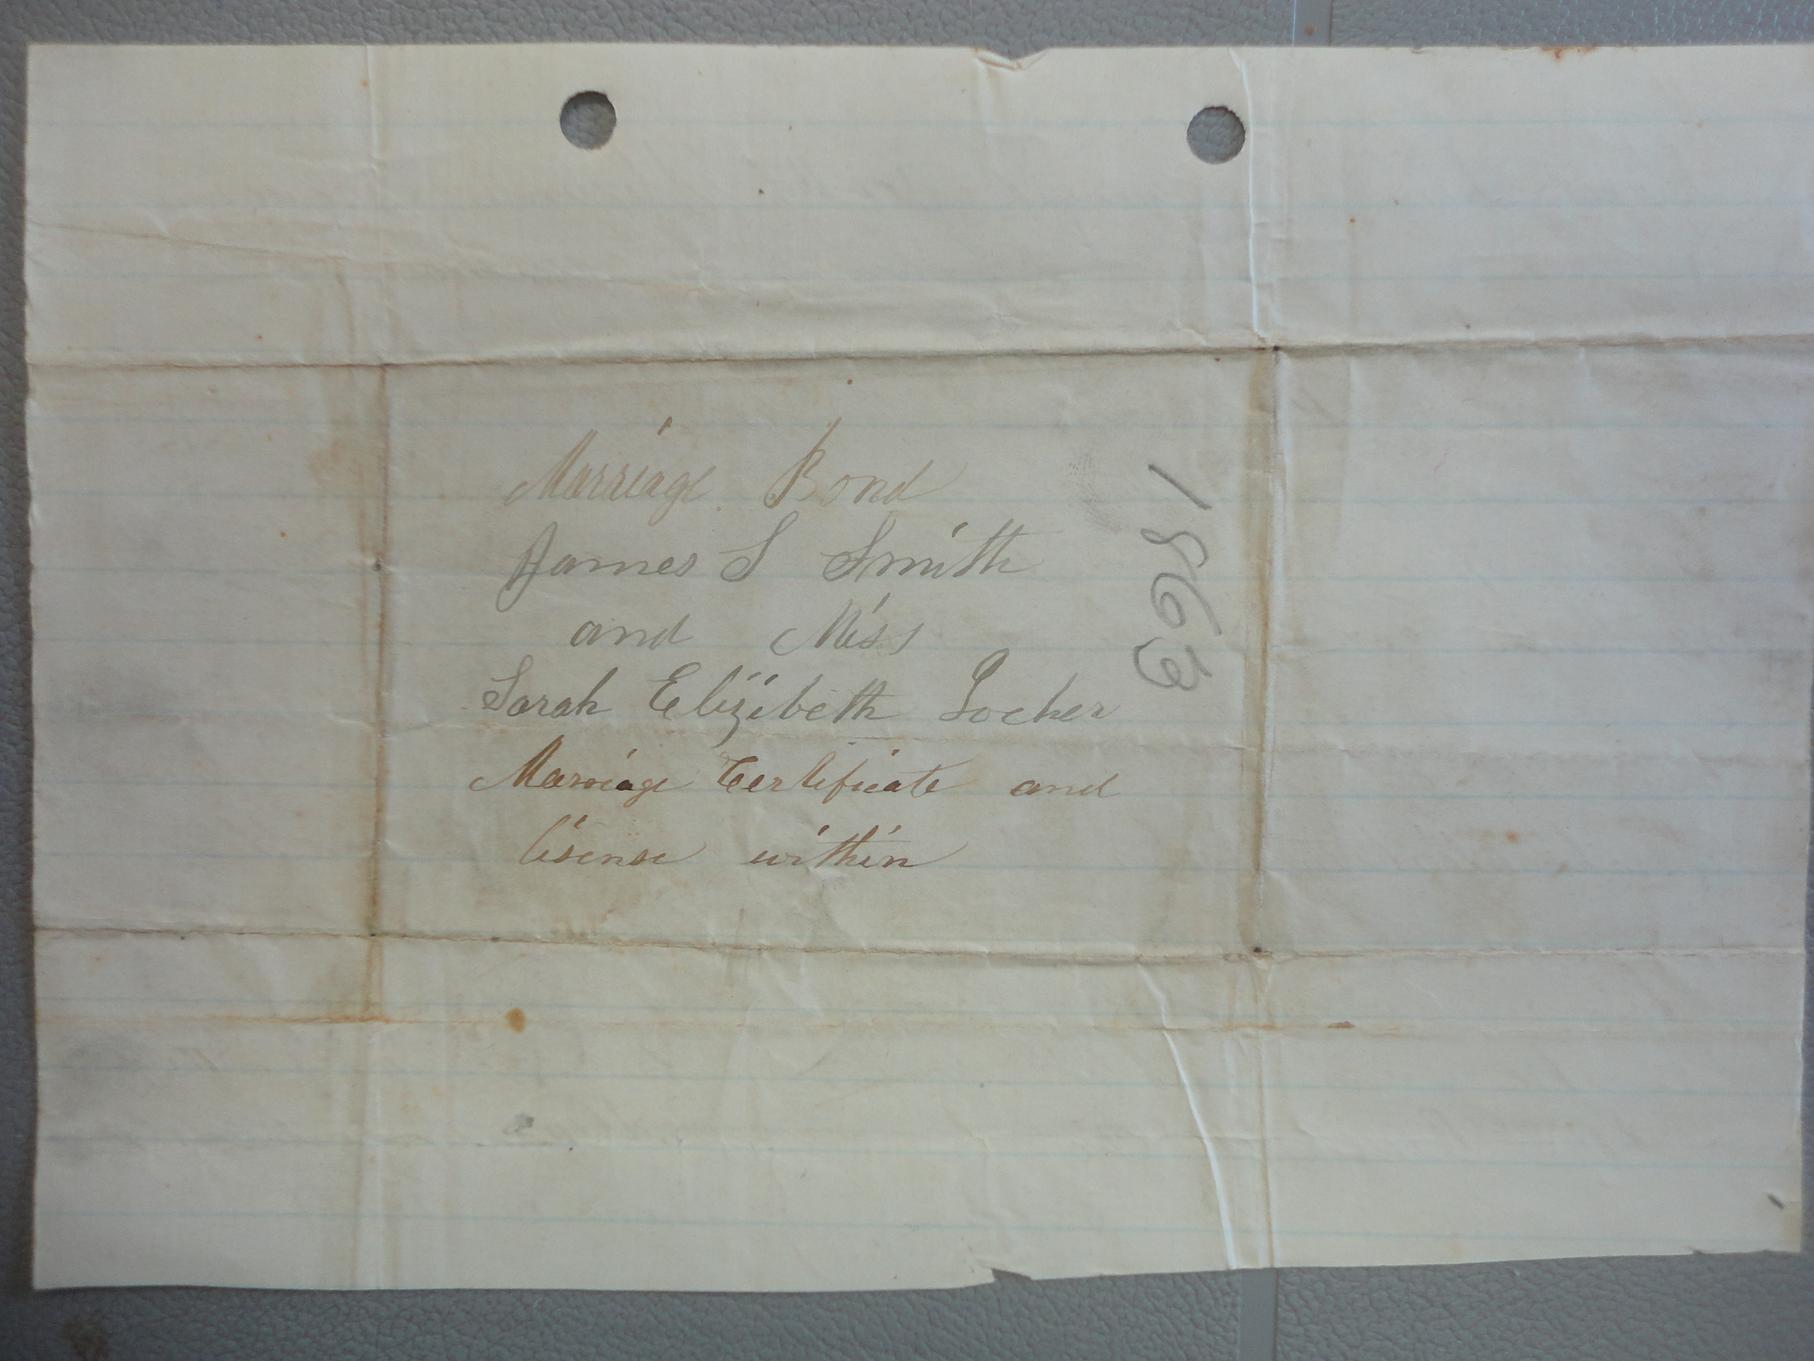 Marriage Bond
James S Smith
and Miss
Sarah Elizibeth Locher
Marriage Certificate and
lisense within
1863